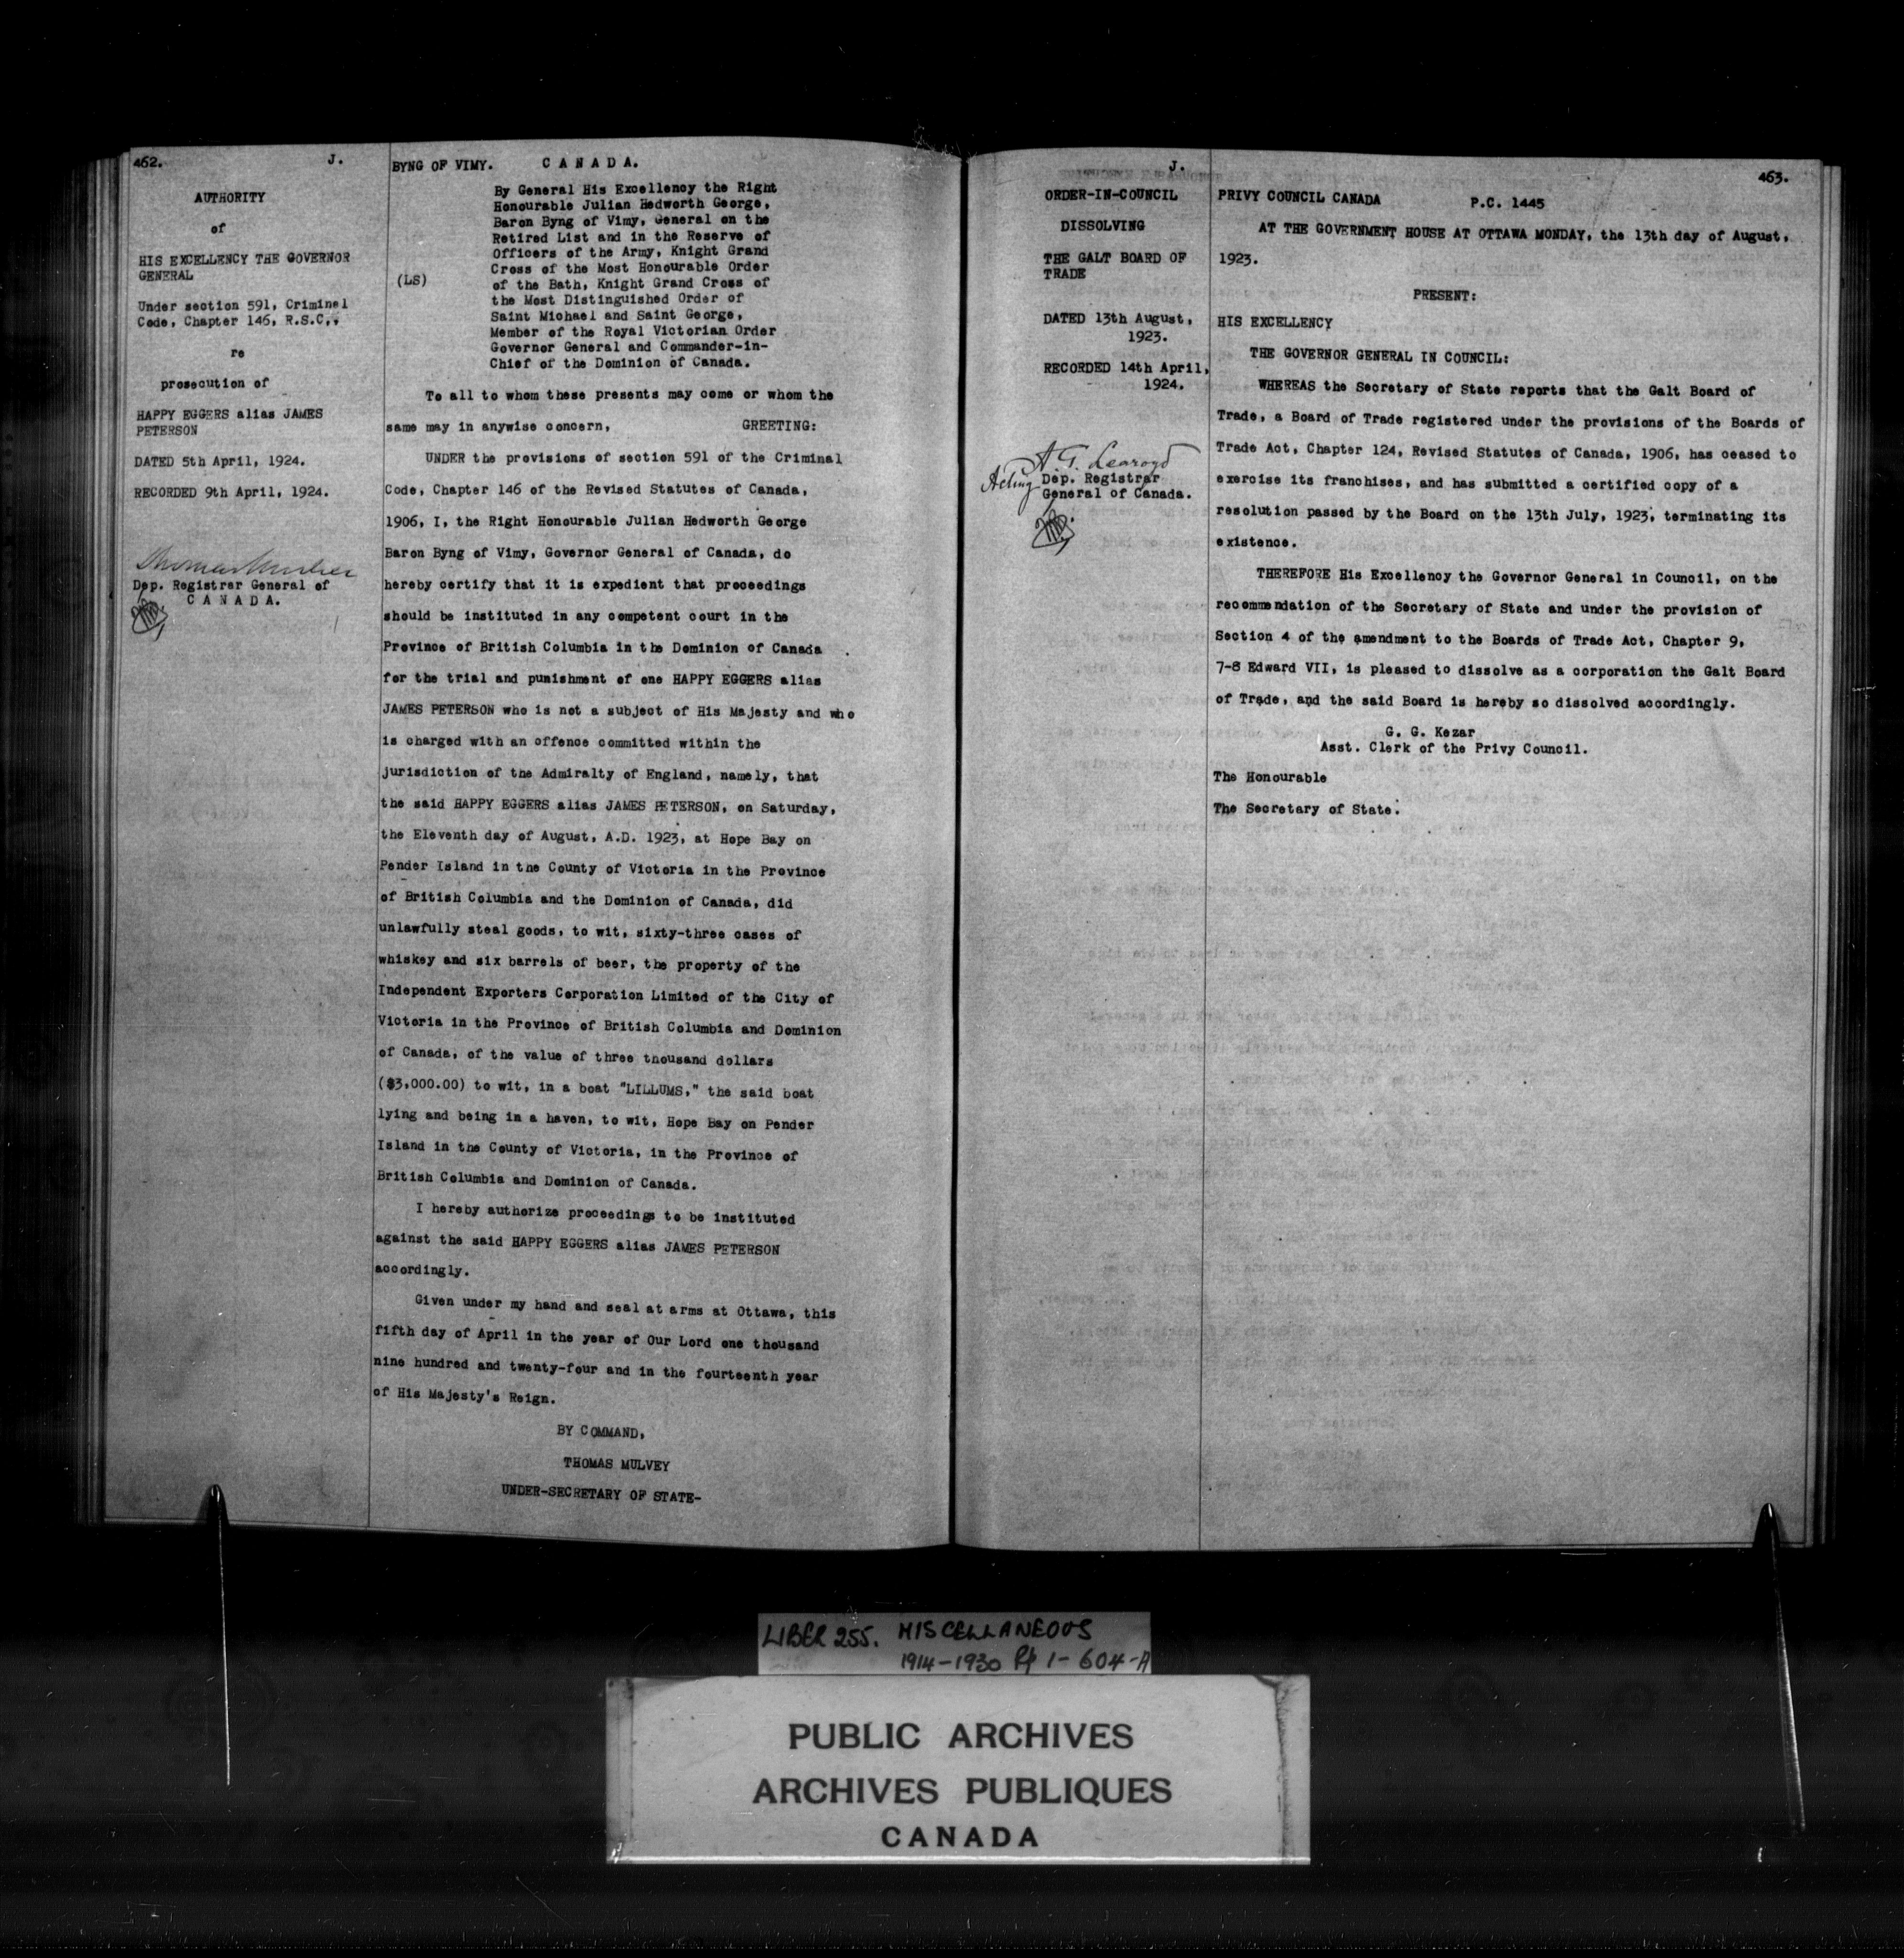 462.
J.
AUTHORITY
of
HIS EXCELLENCY THE GOVERNOR
GENERAL
Under section 591, Criminal
Code, Chapter 146, R.S.C.,
re
prosecution of
HAPPY EGGERS alias JAMES
PETERSON
DATED 5th April, 1924.
RECORDED 9th April, 1924.
Thomas Mulvey
Dep. Registrar General of
CANADA.
BYNG OF VIMY. CANADA.
By General His Excellency the Right
Honourable Julian Hedworth George,
Baron Byng of Vimy, General on the
Retired List and in the Reserve of
Officers of the Army, Knight Grand
Cross of the Most Honourable Order
(LS)
of the Bath, Knight Grand Cross of
the Most Distinguished Order of
Saint Michael and Saint George,
Member of the Royal Victorian Order
Governor General and Commander-in-
Chief of the Dominion of Canada.
To all to whom these presents may come or whom the
same may in anywise concern, GREETING:
UNDER the provisions of section 591 of the Criminal
Code, Chapter 146 of the Revised Statutes of Canada,
1906, I, the Right Honourable Julian Hedworth George
Baron Byng of Vimy, Governor General of Canada, do
hereby certify that it is expedient that proceedings
should be instituted in any competent court in the
Province of British Columbia in the Dominion of Canada
for the trial and punishment of one HAPPY EGGERS alias
JAMES PETERSON who is not a subject of His Majesty and who
is charged with an offence committed within the
jurisdiction of the Admiralty of England, namely, that
the said HAPPY EGGERS alias JAMES PETERSON, on Saturday,
the Eleventh day of August, A.D. 1923, at Hope Bay on
Pender Island in the County of Victoria in the Province
of British Columbia and the Dominion of Canada, did
unlawfully steal goods, to wit, sixty-three cases of
whiskey and six barrels of beer, the property of the
Independent Exporters Corporation Limited of the City of
Victoria in the Province of British Columbia and Dominion
of Canada, of the value of three thousand dollars
($3,000.00) to wit, in a boat "LILLUMS," the said boat
lying and being in a haven, to wit, Hope Bay on Pender
Island in the County of Victoria, in the Province of
British Columbia and Dominion of Canada.
I hereby authorize proceedings to be instituted
against the said HAPPY EGGERS alias JAMES PETERSON
accordingly.
Given under my hand and seal at arms at Ottawa, this
fifth day of April in the year of Our Lord one thousand
nine hundred and twenty-four and in the fourteenth year
of His Majesty's Reign.
BY COMMAND,
THOMAS MULVEY
UNDER-SECRETARY OF STATE-
J.
463.
ORDER-IN-COUNCIL
DISSOLVING
THE GALT BOARD OF
TRADE
DATED 13th August,
1923.
RECORDED 14th April,
1924.
A. G. Learoyd
Acting Dep. Registrar
General of Canada.
PRIVY COUNCIL CANADA P.C. 1445
AT THE GOVERNMENT HOUSE AT OTTAWA MONDAY, the 13th day of August,
1923.
PRESENT:
HIS EXCELLENCY
THE GOVERNOR GENERAL IN COUNCIL:
WHEREAS the Secretary of State reports that the Galt Board of
Trade, a Board of Trade registered under the provisions of the Boards of
Trade Act, Chapter 124, Revised Statutes of Canada, 1906, has ceased to
exercise its franchises, and has submitted a certified copy of a
resolution passed by the Board on the 13th July, 1923, terminating its
existence.
THEREFORE His Excellency the Governor General in Council, on the
recommendation of the Secretary of State and under the provision of
Section 4 of the amendment to the Boards of Trade Act, Chapter 9,
7-8 Edward VII, is pleased to dissolve as a corporation the Galt Board
of Trade, and the said Board is hereby so dissolved accordingly.
G. G. Kezar
Asst. Clerk of the Privy Council.
The Honourable
The Secretary of State.
LIBER 255. MISCELLANEOUS
1914-1930 Pp 1-604-A
PUBLIC ARCHIVES
ARCHIVES PUBLIQUES
CANADA